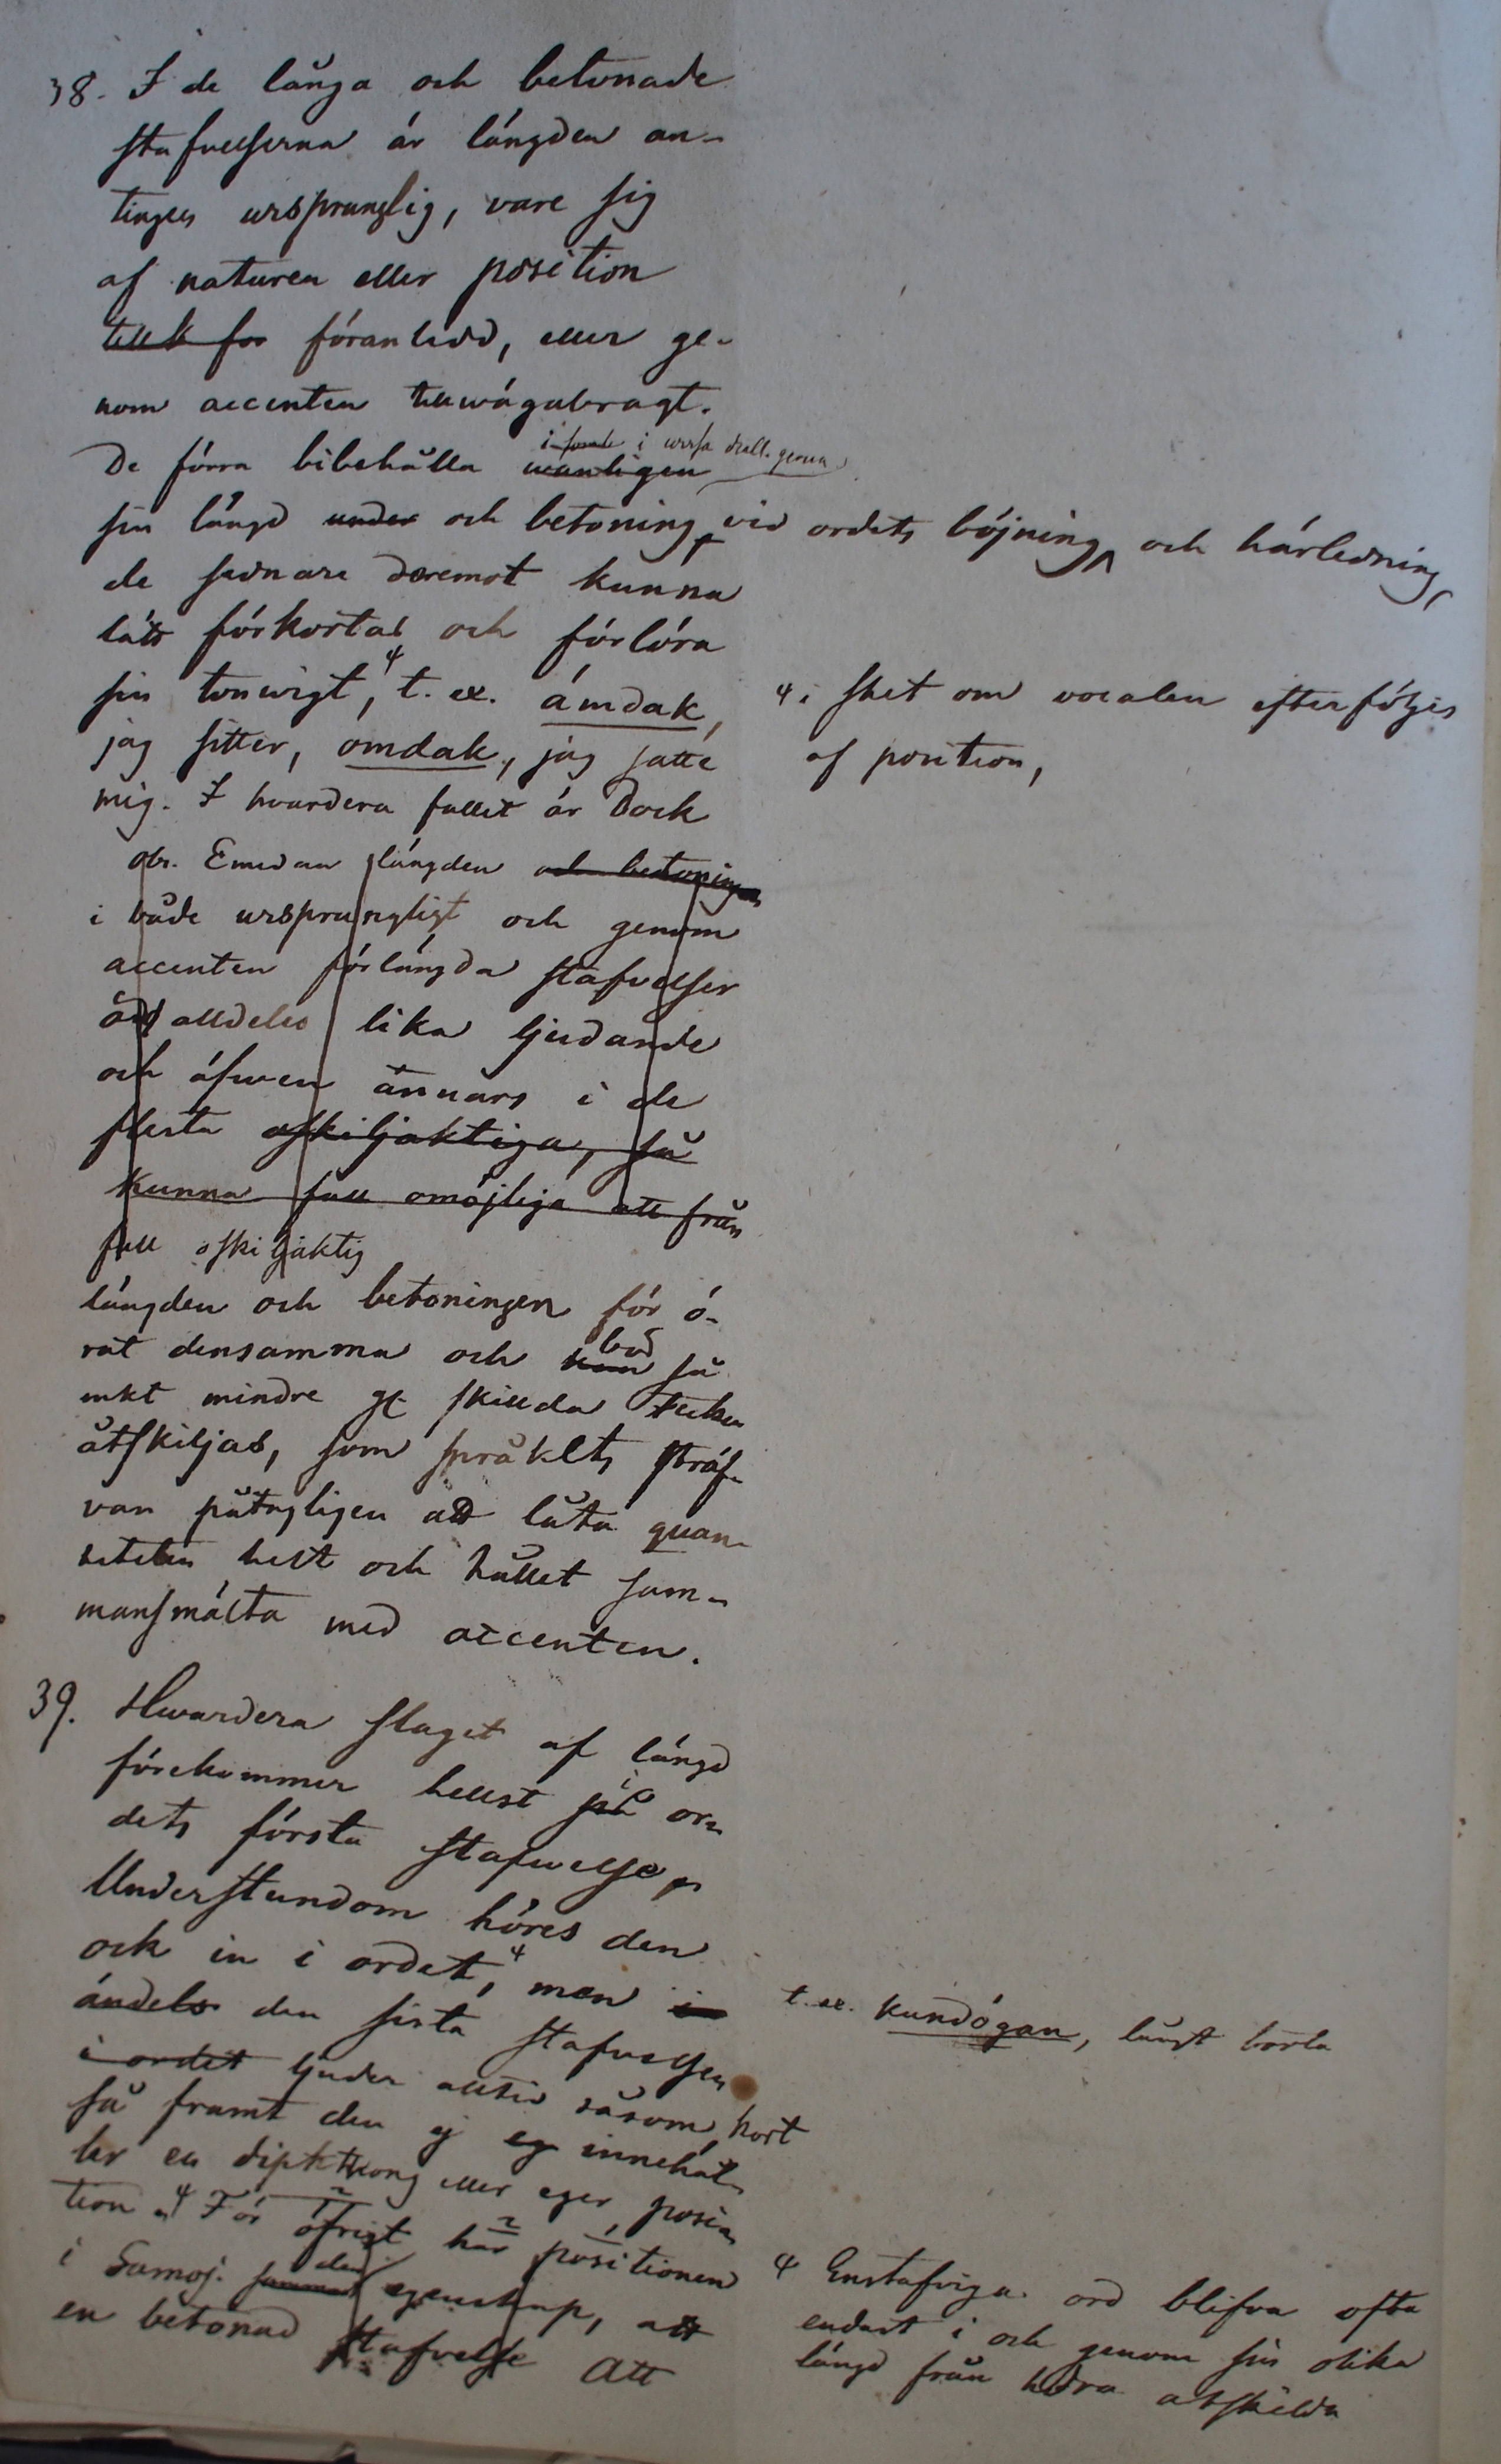 38. I de långa och betonade
stafvelserna är längden an-
tingen ursprunglig, vare sig
af naturen eller position
föranledd, eller ge-
nom accenten tillvägabragt.
i i vissa diall. gerna
De förra bibehålla wanligen
sin längd under och betoning vid ordets böjning och härledning,
de sednare deremot kunna
lätt förkortas och förlora
sin tonvigt, t. ex. ámdak,
jag sitter, omdak, jag satte
mig. I hvardera fallet är dock
4. i ſhet om vocalen efterföljes
af position,
obs. Emedan längden och betoningen
i både ursprungligt och genom
accenten förlängda stafvelser
är alldeles lika ljudande
och äfwen annars i de
flesta oskiljaktiga, så
kunna fall omöjliga att från
fall oskiljaktig
längden och betoningen för ö-
rat densamma och kan så
mindre skillda tecken
åtskiljas, som språkets sträf-
van påtagligen att låta quan-
titeten helt och hållet sam-
mansmälta med accenten.
39. Hwardera slaget af längd
förekommer hellst på or-
dets första stafwelse,
Understundom höres den
ock in i ordet, men i
t. ex. kundógan, långt borta
ändels den sista stafvelsen
i ordet ljuder alltid såsom kort
så framt den ej innehål-
ler en diphthong eller eger posi-
tion. För öfrigt har positionen
i Samoj. den egenskap, att
en betonad stafvelse att
4 Enstafviga ord blifva ofta
endast i och genom sin olika
längd från hvdra atskilda